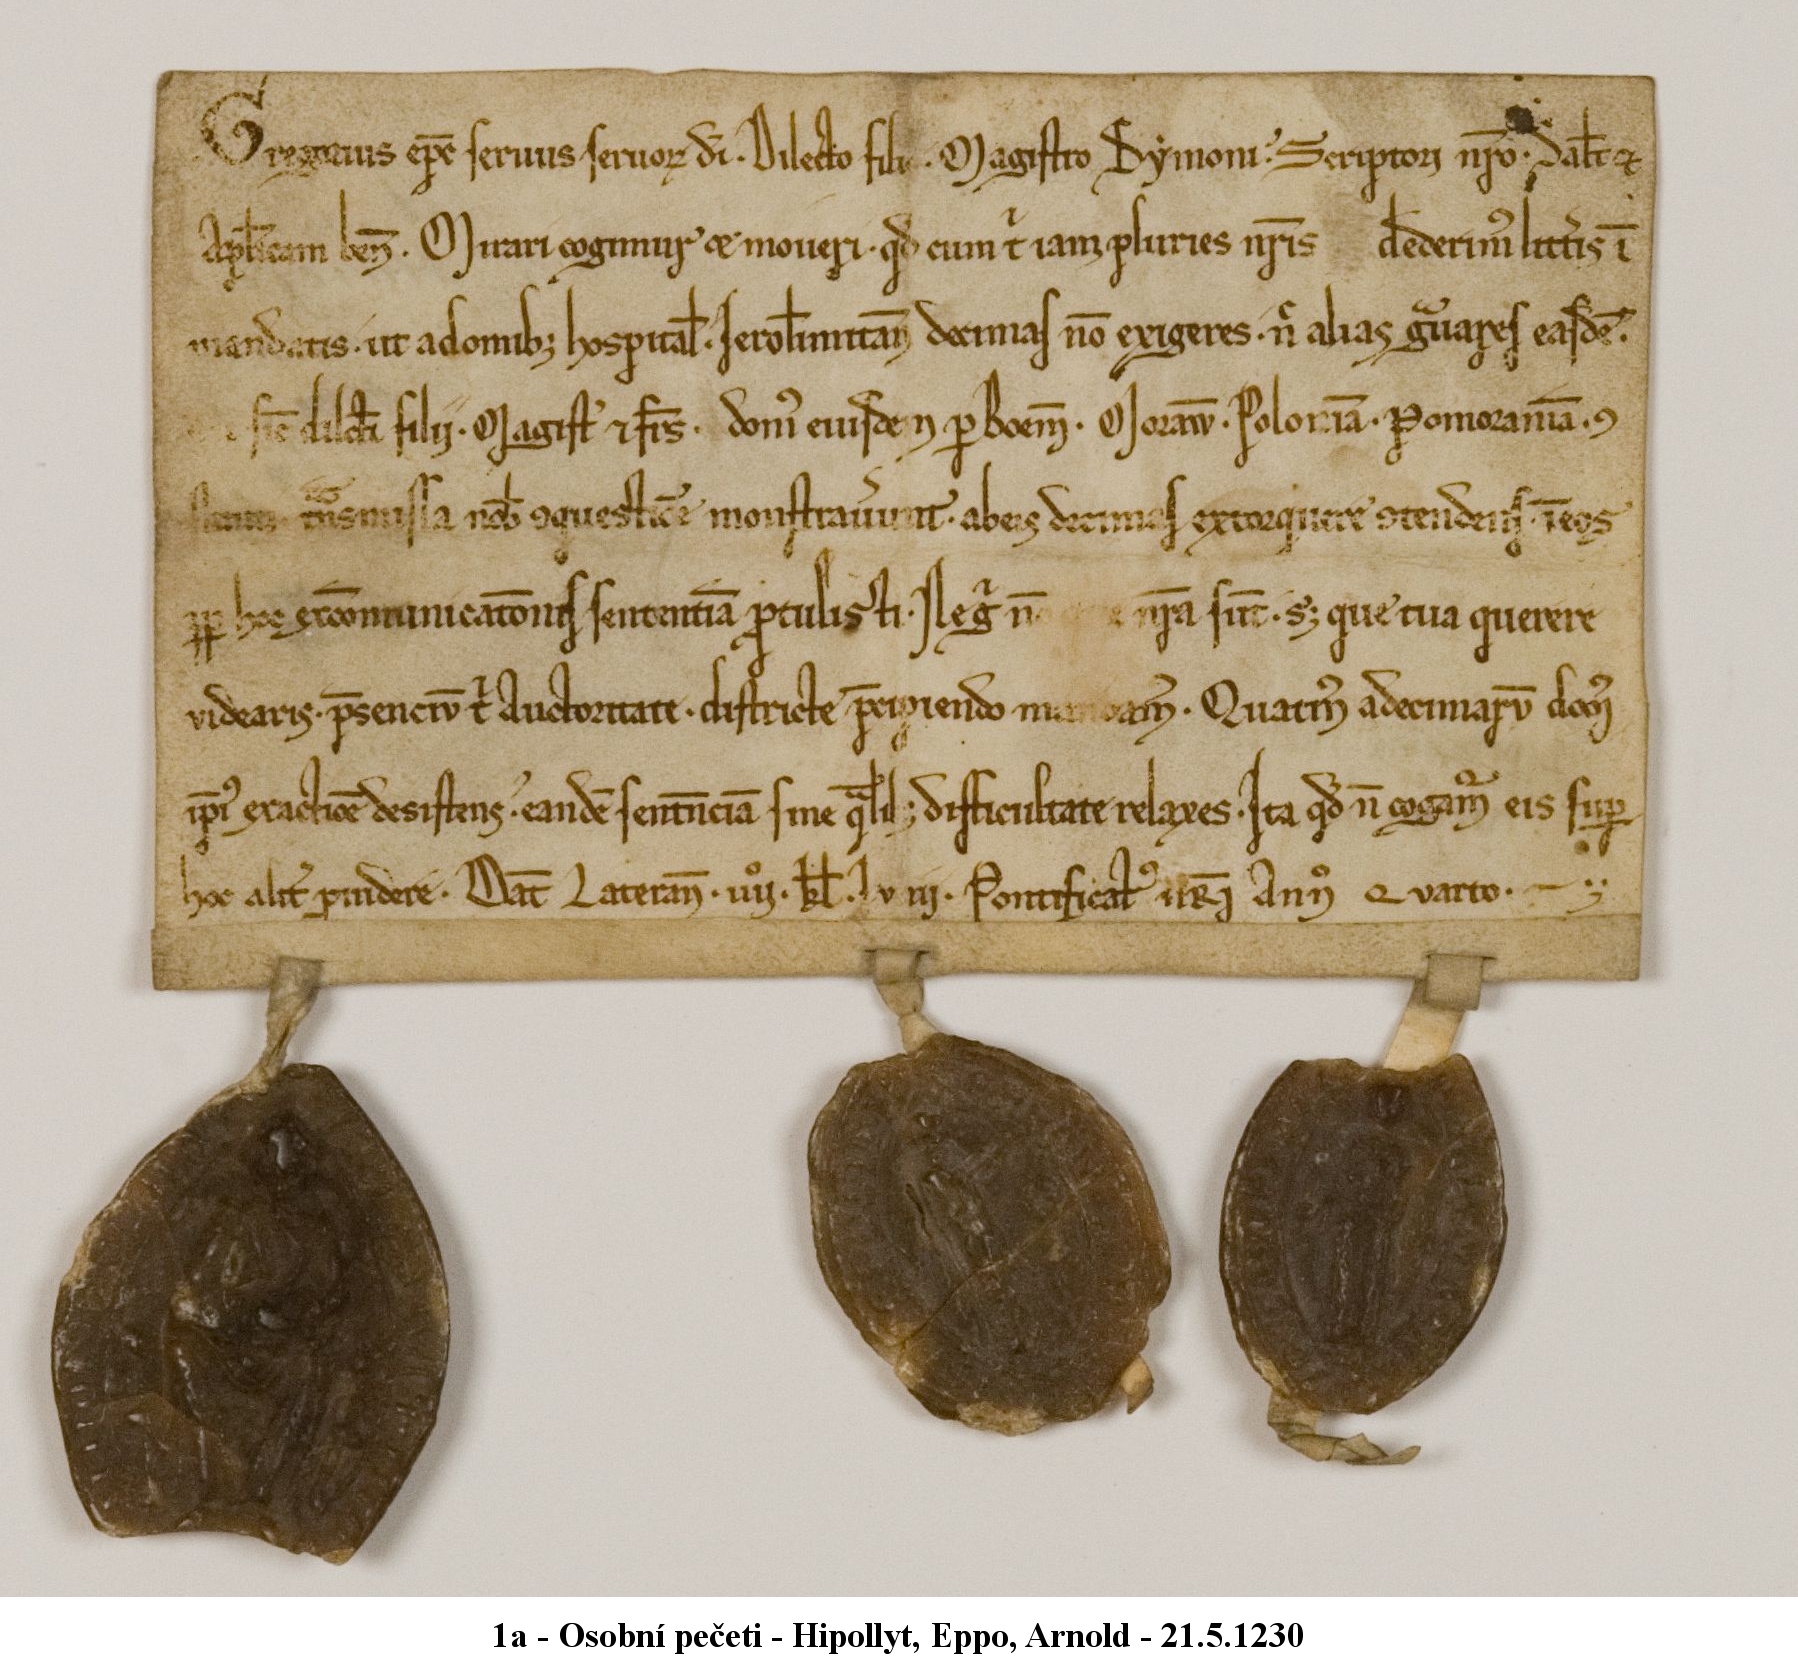 Gregorius ep̄c seruus seruoꝝ dī. Dilecto filio. Magistro Symoni. Scriptori nr̄o. Saƚt ⁊
Apƚicam ben̄. Mirari cogimur ⁊ moueri. qđ cum tⁱ iam pluries nr̄is dederimꝰ litt̄is ī
mandatis. ut a domibꝫ hospitaƚ. Ieroƚimitan̄ decimas nō exigeres. nͨ alias gͣuares easdē.
sic̄ dilc̄i filij. Magist̄ ⁊ fr̄s. domꝰ eiusdem ꝑ Boem̄. Moraw̄. Poloniā. Pomoraniā. ꝯ
tͣnsmissa nob̄ ꝯquestiōe monstrauerunt. ab eis decimas extorquere ꝯtendens. ī eos
ꝓp hoc excōmunicatōnis sententiā ꝓtulisti. Ne gͥ n̄ nr̄a sūt. sꝫ que tua querere
videaris. p̄senciū tⁱ auctoritate. districte p̄cipiendo mandamꝰ. Quatinꝰ a decimaꝝ
ip̄iꝰ exactiōe desistens. eandē sentn̄ciā sine qͣlibꝫ difficultate relaxes. Ita qđ n̄ cogamꝰ eis suꝑ
hoc alit̄ ꝓuidere. Dat̄ Lateran̄. kƚ. Iunij. Pontificatꝰ nr̄i Annͦ Quarto.
1a - Osobní pečeti - Hipollyt, Eppo, Arnold - 21.5.1230